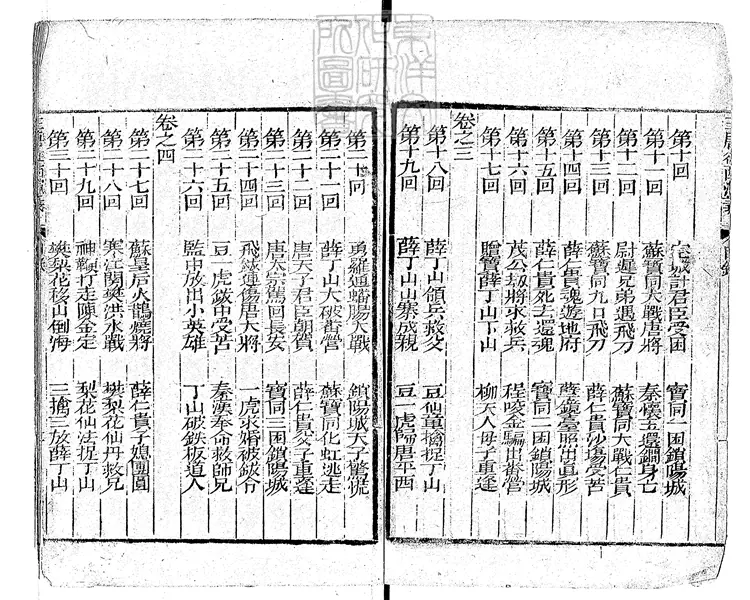 第十回　空城計君臣受困　寶同一困鎖陽城
第十一回　蘇寶同大戰唐將　秦懷玉還鐧身亡
第十二回　尉遲兄弟遇飛刀　蘇寶同大戰仁貴
第十三回　蘇寶同九口飛刀　薛仁貴沙場受苦
第十四回　薛仁貴魂遊地府　孽鏡臺照出真形
第十五回　薛仁貴死去還魂　寶同二困鎖陽城
第十六回　茂公劝將求救兵　程咬金騙出番營
第十七回　贈寶薛丁山下山　柳夫人母子重逢
卷之三
第十八回　薛丁山領兵救父　豆仙童擒捉丁山
第十九回　薛丁山山寨成親　豆一虎歸唐平西
第二十回　勇羅通蟠腸大戰　鎖陽城天子驚慌
第二十一回　薛丁山大破番營　蘇寶同化虹逃走
第二十二回　唐天子君臣朝賀　薛仁貴父子重逢
第二十三回　唐太宗駕回長安　寶同三困鎖陽城
第二十四回　飛鈸連傷唐大將　一虎求婚被鈸合
第二十五回　豆一虎鈸中受苦　秦漢奉命救師兄
第二十六回　監中放出小英雄　丁山破鉄板道人
卷之四
第二十七回　蘇皇后火鵲燒將　薛仁貴子媳團圓
第二十八回　寒江関樊洪水戰　樊梨花仙丹救兄
第二十九回　神鞭打走陳金定　梨花仙法捉丁山
第三十回　樊梨花移山倒海　三擒三放薛丁山